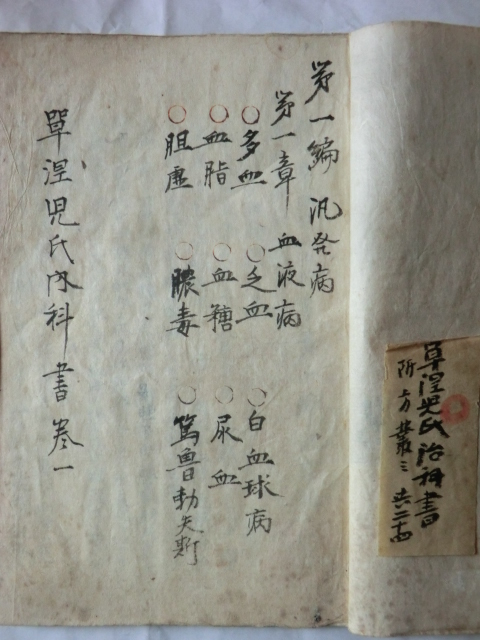 單涅児氏治科書
共二十四
第一編 汎発病
第一章 血液病
○多血 ○乏血 ○白血球病
○血脂 ○血糖 ○尿血
○胆虚 ○膿毒 ○篤魯勃矢斯
單涅児氏内科書 巻一